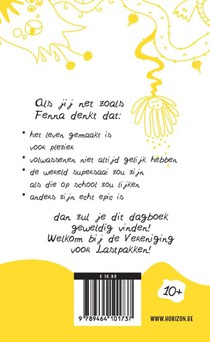 Als jij net zoals
Fenna denkt dat:
• het leven gemaakt is
voor plezier
• volwassenen niet altijd gelijk hebben
• de wereld supersaai zou zijn
als die op school zou lijken
• anders zijn echt epic is
dan zul je dit dagboek
geweldig vinden!
Welkom bij de Vereniging
voor Lastpakken!
10+
9 789464 101737
WWW.HORIZON.BE